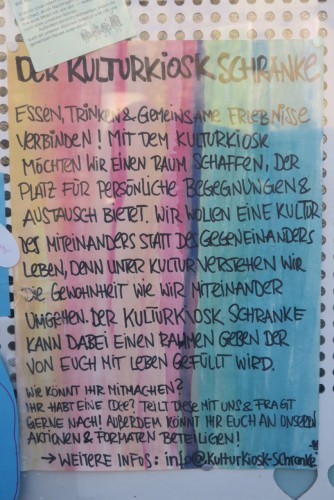 DER KULTURKIOSK SCHRANKE
ESSEN, TRINKEN & GEMEINSAME ERLEBNISSE
VERBINDEN! MIT DEM KULTURKIOSK
MÖCHTEN WIR EINEN RAUM SCHAFFEN, DER
PLATZ FÜR PERSÖNLICHE BEGEGNUNGEN &
AUSTAUSCH BIETET. WIR WOLLEN EINE KULTUR
DES MITEINANDERS STATT DES GEGENEINANDERS
LEBEN, DENN UNTER KULTUR VERSTEHEN WIR
DIE GEWOHNHEIT WIE WIR MITEINANDER
UMGEHEN. DER KULTURKIOSK SCHRANKE
KANN DABEI EINEN RAHMEN GEBEN DER
VON EUCH MIT LEBEN GEFÜLLT WIRD.
WIE KÖNNT IHR MITMACHEN?
IHR HABT EINE IDEE? TEILT DIESE MIT UNS & FRAGT
GERNE NACH! AUßERDEM KÖNNT IHR EUCH AN UNSEREN
AKTIONEN & FORMATEN BETEILIGEN!
→ WEITERE INFOS: info@kulturkiosk-schranke